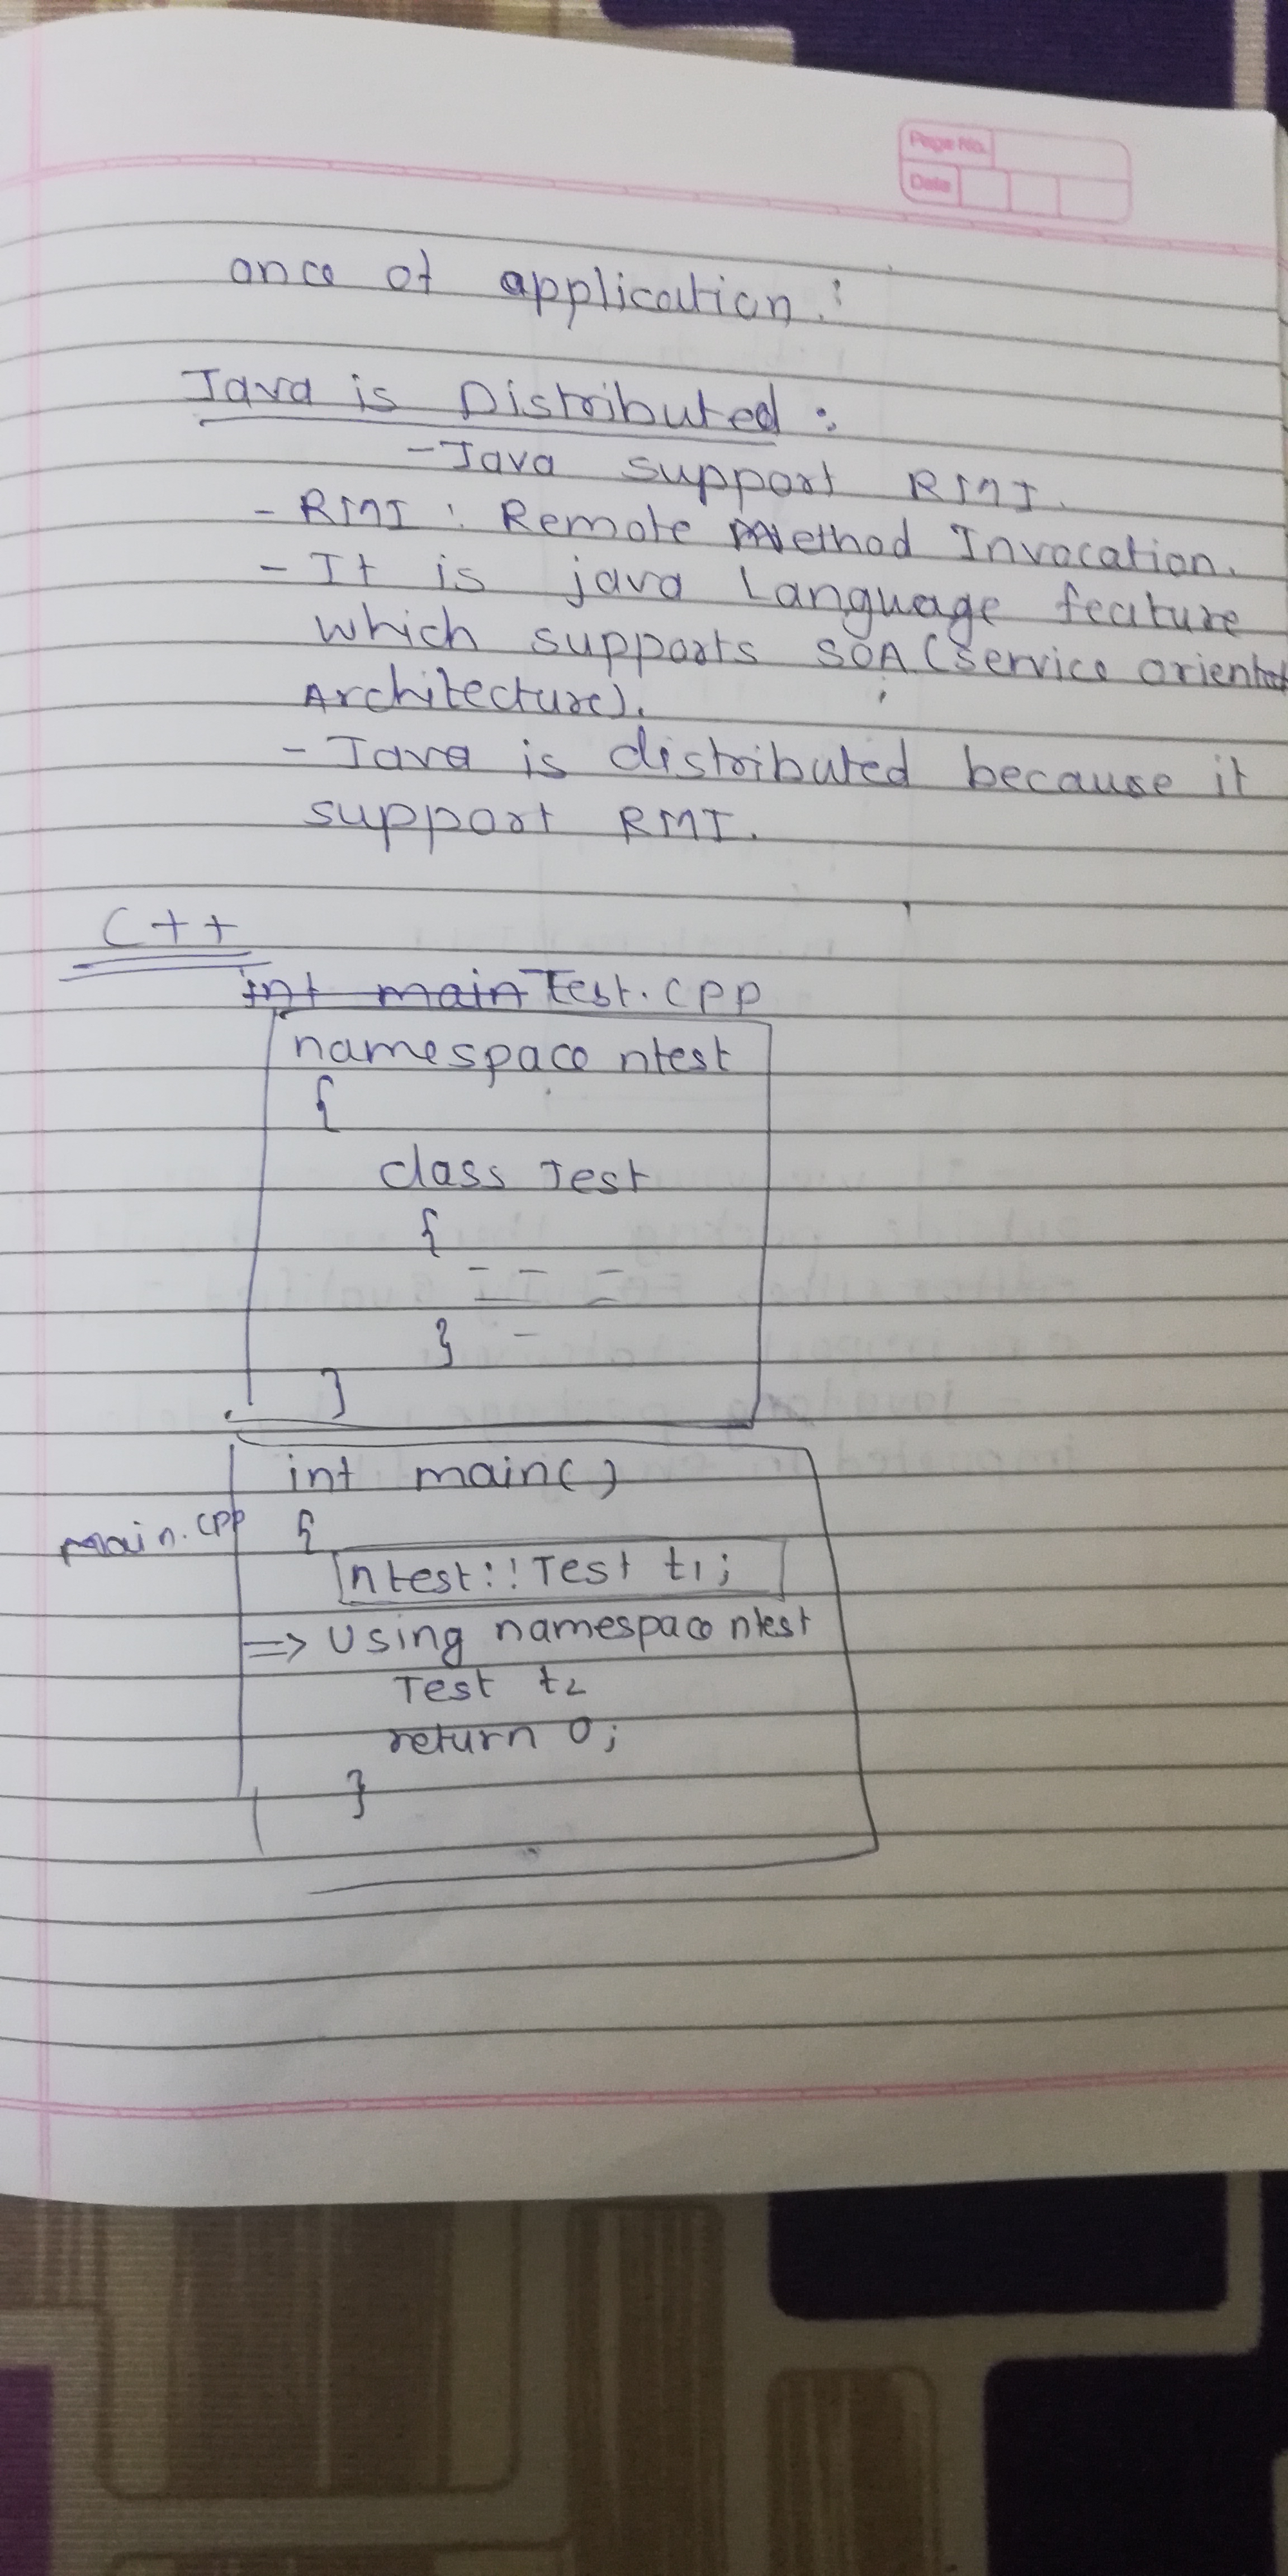 Page No.
Date
ance of application.
Java is Distributed :
- Java support RMI.
- RMI : Remote Method Invocation.
- It is java Language feature
which supports SOA (service oriented
Architecture).
- Java is distributed because it
support RMI.
C++
int main Test.cpp
namespace ntest
{
class Test
{
}
}
int main()
main.cpp {
ntest::Test t1;
=> Using namespace ntest
Test t2
return 0;
}